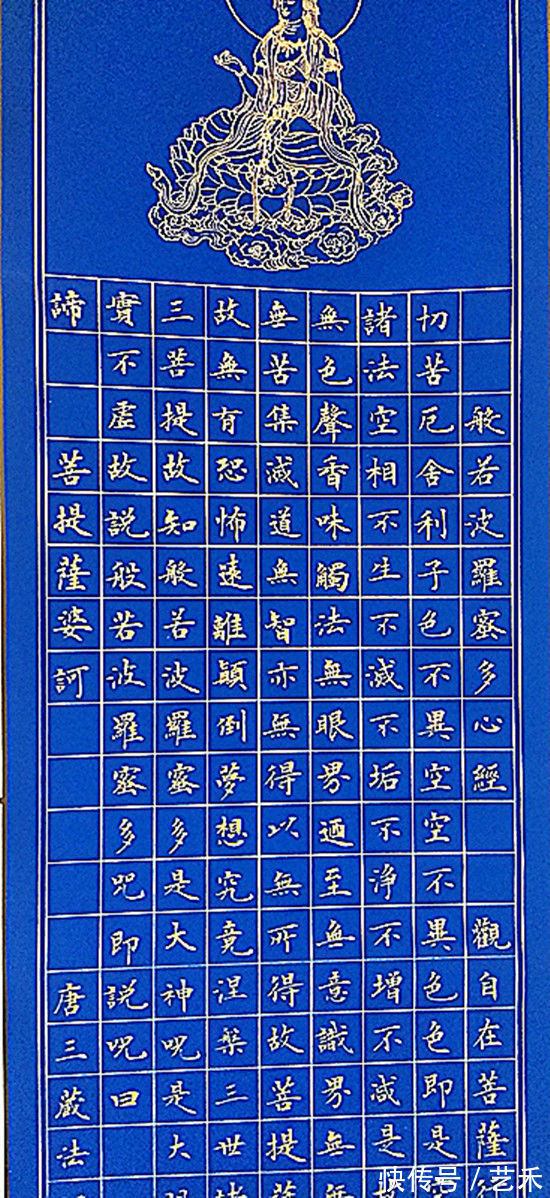 般若波羅蜜多心經 觀自在菩薩
切苦厄舍利子色不異空空不異色色即是
諸法空相不生不滅不垢不淨不增不減是
無色聲香味觸法無眼界迺至無意識界無
無苦集滅道無智亦無得以無所得故菩提
故無有恐怖遠離顛倒夢想究竟涅槃三世
三菩提故知般若波羅蜜多是大神呪是大
實不虛故説般若波羅蜜多呪即説呪曰
諦 菩提薩婆訶 唐三藏法
快传号 / 艺禾